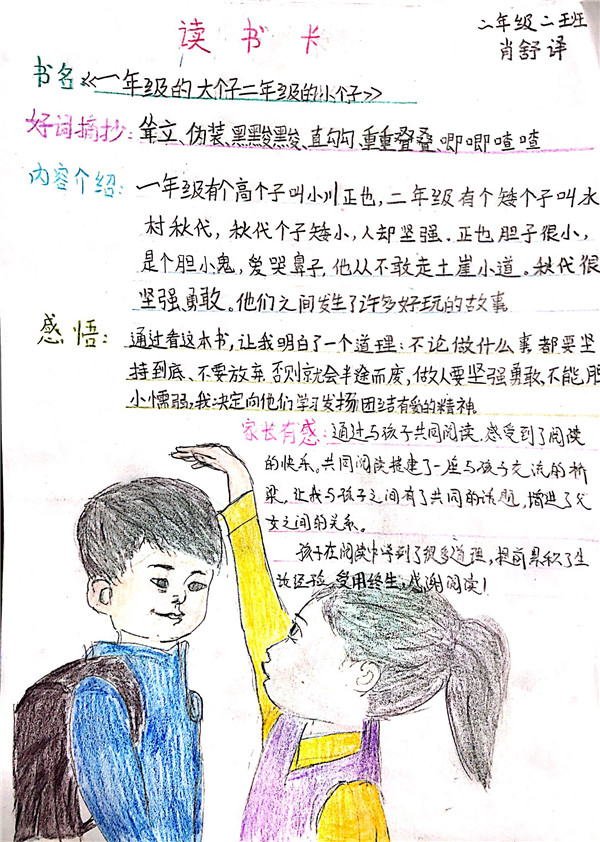 读书卡
二年级二班
肖舒译
书名《一年级的大个子二年级的小个子》
好词摘抄：耸立、伪装、黑黢黢、直勾勾、重重叠叠、唧唧喳喳
内容介绍：一年级有个高个子叫小川正也，二年级有个矮个子叫水
村秋代，秋代个子矮小，人却坚强．正也胆子很小，
是个胆小鬼，爱哭鼻子，他从不敢走土崖小道。秋代很
坚强勇敢。他们之间发生了许多好玩的故事
感悟：通过看这本书，让我明白了一个道理：不论做什么事都要坚
持到底、不要放弃否则就会半途而废，做人要坚强勇敢，不能胆
小懦弱，我决定向他们学习发扬团结有爱的精神
家长有感：通过与孩子共同阅读．感受到了阅读
的快乐。共同阅读搭建了一座与孩子交流的桥
梁．让我与孩子之间有了共同的话题，增进了父
女之间的关系。
孩子在阅读中学到了很多道理，提前累积了生
活经验，受用终生，感谢阅读！